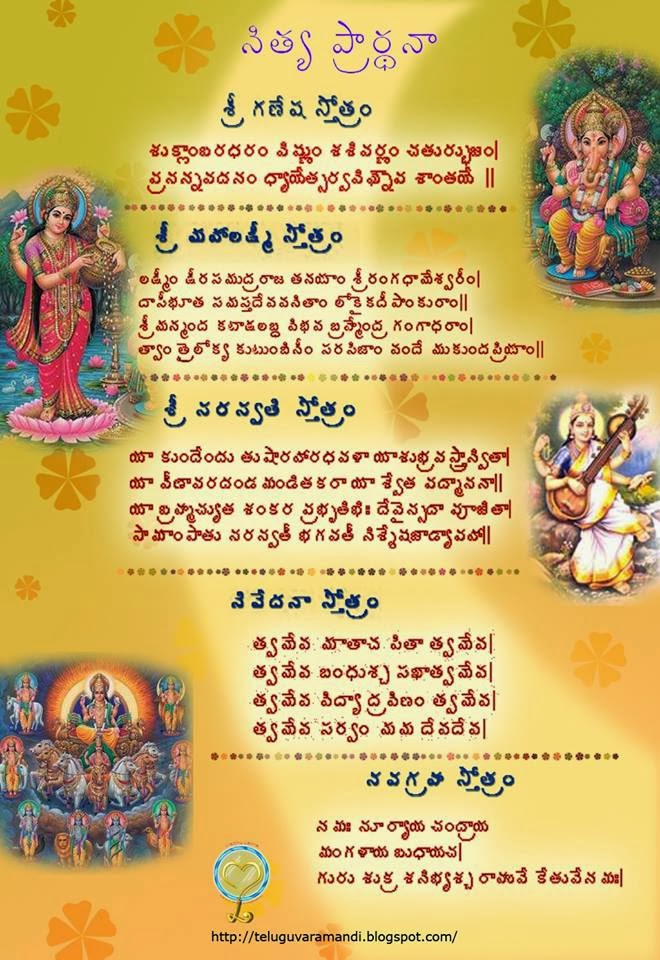 నిత్య ప్రార్థనా
శ్రీ గణేష స్తోత్రం
శుక్లాంబరధరం విష్ణుం శశివర్ణం చతుర్భుజం|
ప్రసన్నవదనం ధ్యాయేత్సర్వవిఘ్నోప శాంతయే ||
శ్రీ మహాలక్ష్మీ స్తోత్రం
లక్ష్మీం క్షీరసముద్రరాజ తనయాం శ్రీరంగధామేశ్వరీం|
దాసీభూత సమస్తదేవవనితాం లోకైకదీపాంకురాం||
శ్రీమన్మంద కటాక్షలబ్ధ విభవ బ్రహ్మేంద్ర గంగాధరాం|
త్వాం త్రైలోక్య కుటుంబినీం సరసిజాం వందే ముకుందప్రియాం||
శ్రీ సరస్వతి స్తోత్రం
యా కుందేందు తుషారహారధవళా యాశుభ్రవస్త్రాన్వితా|
యా వీణావరదండ మండితకరా యా శ్వేత పద్మాసనా||
యా బ్రహ్మచ్యుత శంకర ప్రభృతిభిః దేవైస్సదా పూజితా|
సామాంపాతు సరస్వతీ భగవతీ నిశ్శేషజాడ్యాపహా||
నివేదనా స్తోత్రం
త్వమేవ మాతాచ పితా త్వమేవ|
త్వమేవ బంధుశ్చ సఖాత్వమేవ|
త్వమేవ విద్యాద్రవిణం త్వమేవ|
త్వమేవ సర్వం మమ దేవదేవ|
నవగ్రహ స్తోత్రం
నమః సూర్యాయ చంద్రాయ
మంగళాయ బుధాయచ|
గురు శుక్ర శనిభ్యశ్చ రాహవే కేతువేనమః|
http://teluguvaramandi.blogspot.com/